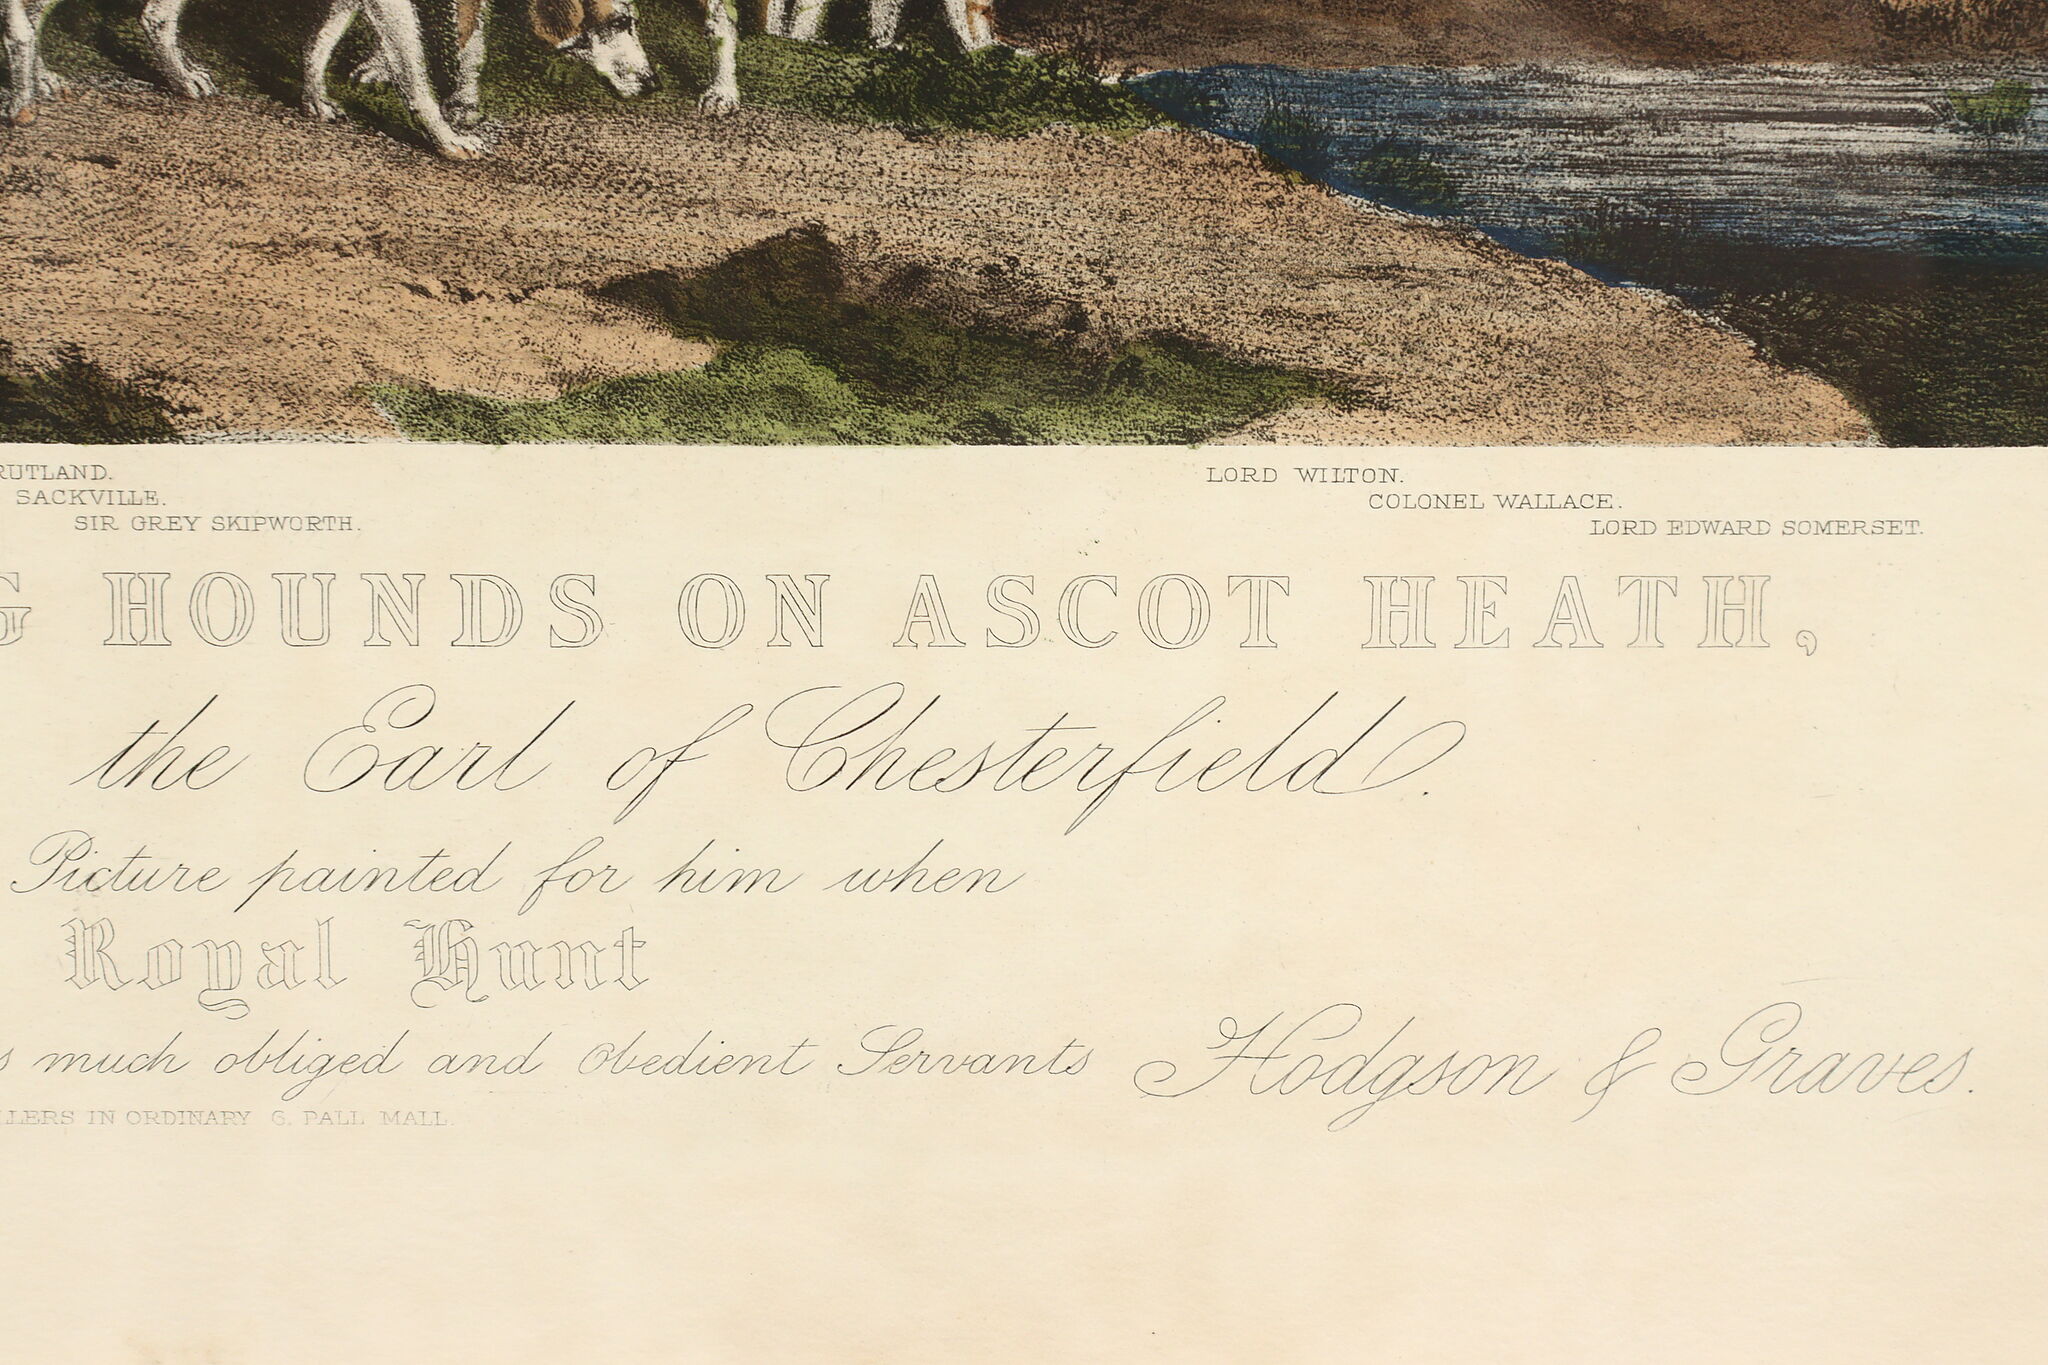 RUTLAND.
SACKVILLE.
SIR GREY SKIPWORTH.
LORD WILTON.
COLONEL WALLACE.
LORD EDWARD SOMERSET.
G HOUNDS ON ASCOT HEATH,
the Earl of Chesterfield.
Picture painted for him when
Royal Hunt
s much obliged and Obedient Servants Hodgson & Graves.
LLERS IN ORDINARY 6. PALL MALL.